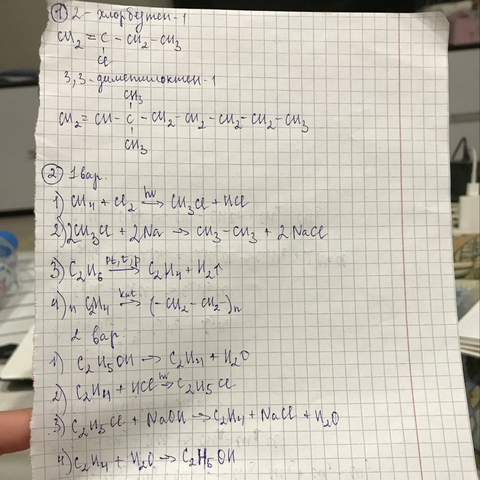 ① 2-хлорбутен-1
CH2 = C - CH2 - CH3
Cl
3,3-диметилоктен-1
CH3
CH2 = CH - C - CH2 - CH2 - CH2 - CH2 - CH3
CH3
② 1 вар.
1) CH4 + Cl2 →hν CH3Cl + HCl
2) 2CH3Cl + 2Na → CH3 - CH3 + 2NaCl
3) C2H6 →pt,t,p C2H4 + H2↑
4) n C2H4 →kat (-CH2 - CH2-)n
2 вар.
1) C2H5OH → C2H4 + H2O
2) C2H4 + HCl →hν C2H5Cl
3) C2H5Cl + NaOH → C2H4 + NaCl + H2O
4) C2H4 + H2O → C2H5OH